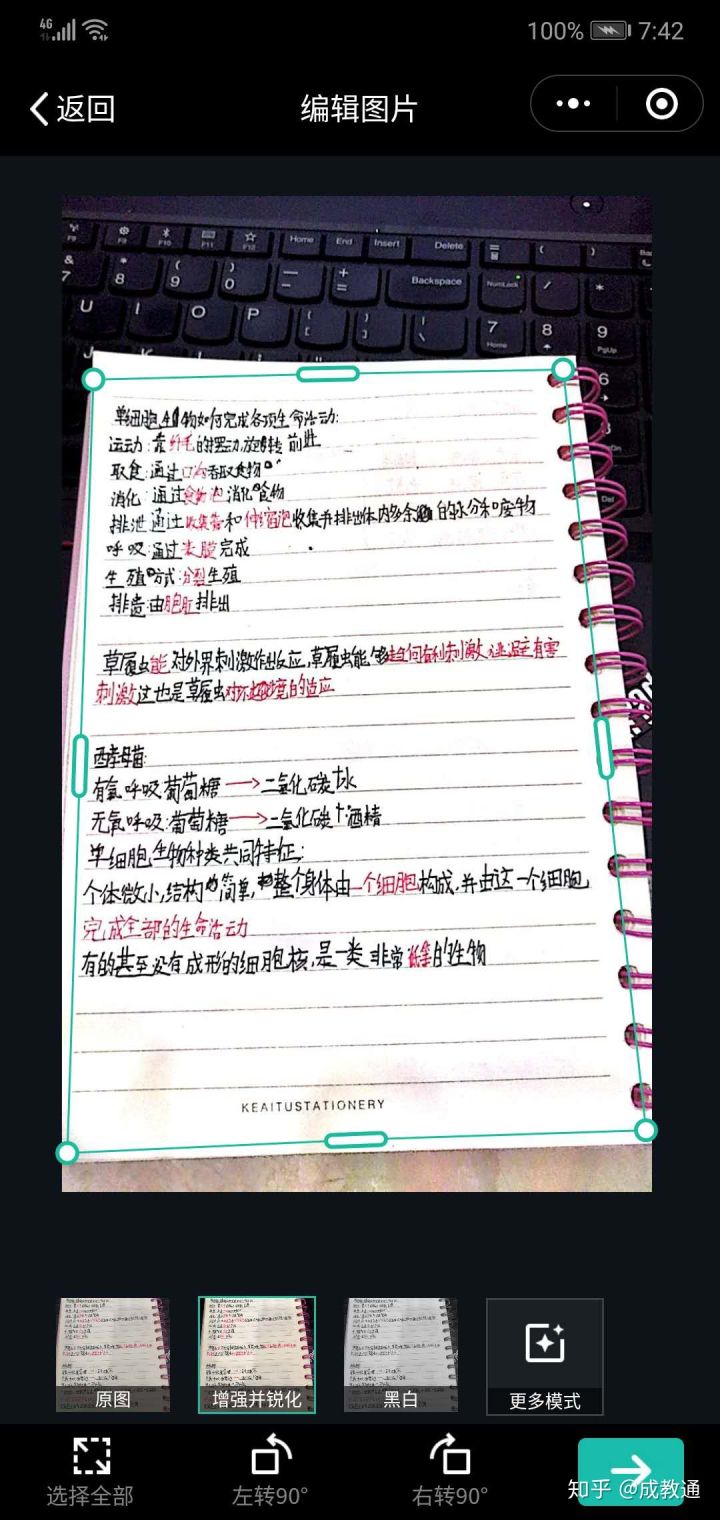 4G 100% 7:42
返回 编辑图片
F9 F10 F11 F12 Home End Insert Delete
& * ( ) — +
7 8 9 0 - = Backspace NumLock / *
U I O P { } | 7 8 9
[ ] \ Home PgUp
J K L 6
3
Del
单细胞生物如何完成各项生命活动:
运动:靠纤毛的摆动,旋转前进
取食:通过口沟吞取食物
消化:通过食物泡消化食物
排泄:通过收集管和伸缩泡收集并排出体内多余的水分和废物
呼吸:通过表膜完成
生殖方式:分裂生殖
排渣:由胞肛排出
草履虫能对外界刺激作出反应,草履虫能够趋向有利刺激,逃避有害
刺激这也是草履虫对环境的适应
酵母菌:
有氧呼吸葡萄糖→二氧化碳+水
无氧呼吸:葡萄糖→二氧化碳+酒精
单细胞生物种类共同特征:
个体微小,结构简单,整个身体由一个细胞构成,并由这一个细胞
完成全部的生命活动
有的甚至没有成形的细胞核,是一类非常低等的生物
KEAITUSTATIONERY
原图 增强并锐化 黑白 更多模式
选择全部 左转90° 右转90°
知乎 @成教通